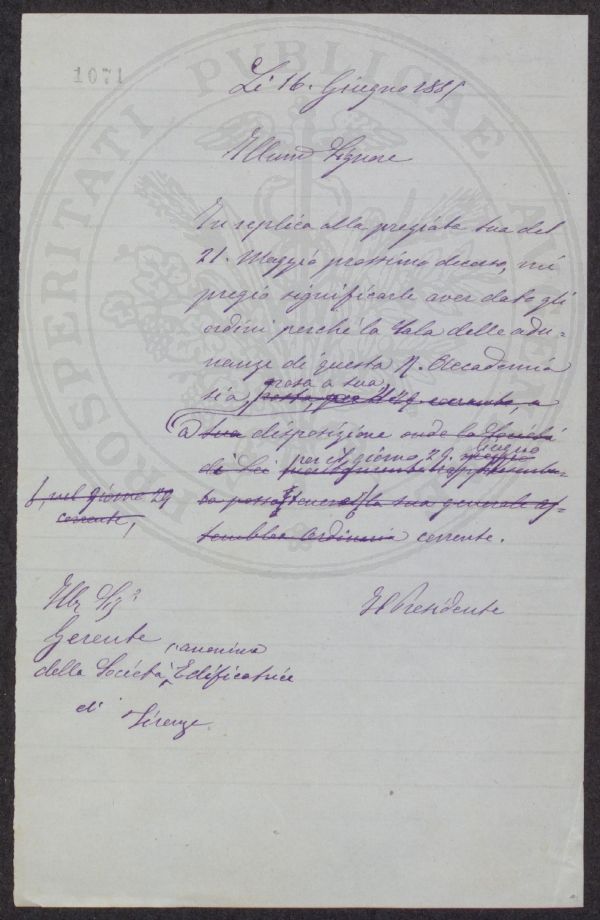 1071
PROSPERITATI PUBLICAE AUGENDAE
Li 16. Giugno 1885
Illmo Signore
In replica alla pregiata sua del
21. Maggio prossimo decorso, mi
pregio significarle aver dato gli
ordini perché la Sala delle adu-
nanze di questa R. Accademia
posta a sua
sia posta, per il 29. corrente, a
a sua disposizione onde la Società
per il giorno 29. Giugno
di Lei
la sua generale as-
semblea Ordinaria corrente.
f, nel giorno 29
corrente,
Il Presidente
Gerente
anonima
della Società Edificatrice
di
Firenze.